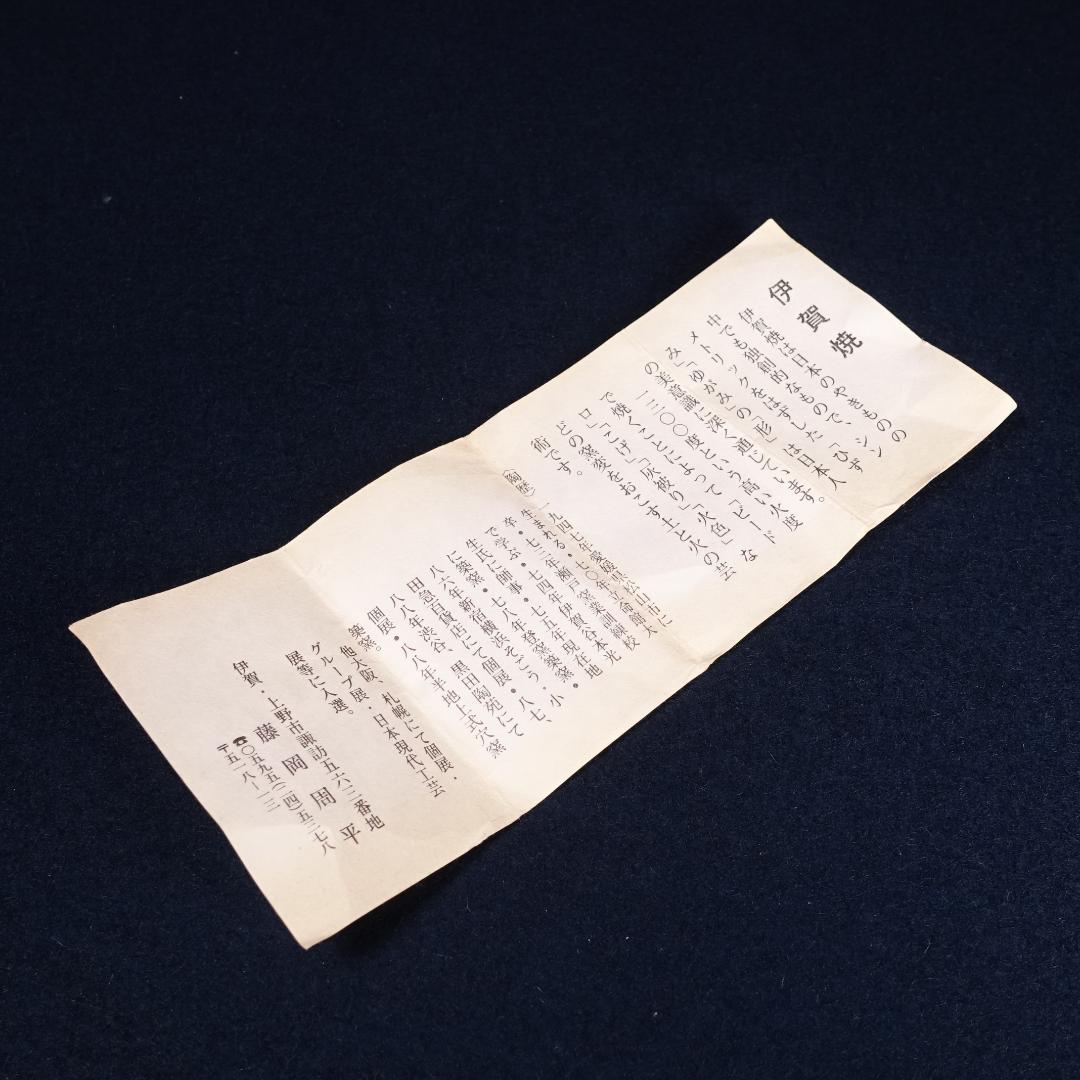 伊賀焼
伊賀焼は日本のやきものの
中でも独創的なもので、シン
メトリックをはずした「ひず
み」「ゆがみ」の「形」は日本人
の美意識に深く通じています。
一三〇〇度という高い火度
で焼くことによって「火色」「ビード
ロ」「こげ」「灰被り」な
どの窯変をおこす土と火の芸
術です。
(陶歴)一九四七年愛媛県松山市に
生まれる・七〇年立命館大
卒・七三年瀬戸窯業訓練校
で学ぶ・七四年伊賀谷本光
生氏に師事・七五年現在地
に築窯・七八年登窯築窯・
八六年新宿、横浜そごう・八七、小
田急百貨店にて個展
八八年渋谷、黒田陶苑にて
個展・八八年半地上式穴窯
築窯。
他大阪、札幌にて個展・
グループ展・日本現代工芸
展等に入選。
伊賀・上野市諏訪五六二番地
藤岡周平
☎〇五九五(二四)五二七八
〒五一八-一三